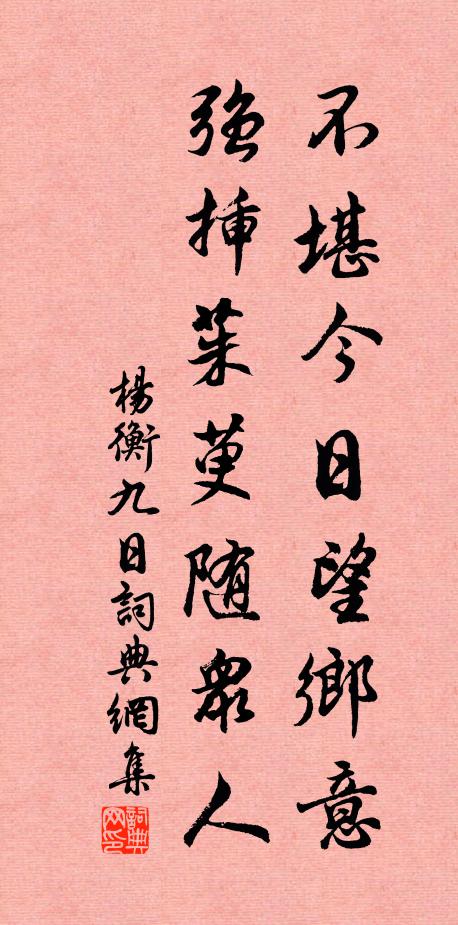 不堪今日望鄉意
強挿茱萸随眾人
楊衡九日詞典網集
詞典网印